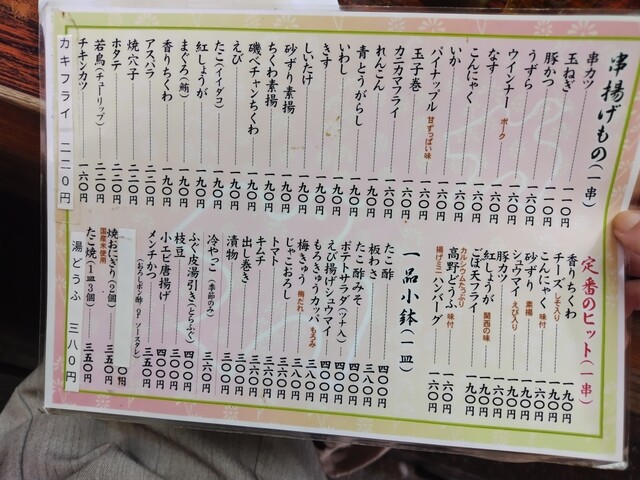 串揚げもの(一串)
串カツ 一一〇円
玉ねぎ 一一〇円
豚かつ 一六〇円
うずら 一六〇円
ウインナー ポーク 一六〇円
なす 一六〇円
こんにゃく 一六〇円
いか 一六〇円
パイナップル 甘ずっぱい味 一六〇円
玉子巻 一六〇円
カニカマフライ 一六〇円
れんこん 一六〇円
青とうがらし 一九〇円
いわし 一九〇円
きす 一九〇円
しいたけ 一九〇円
砂ずり素揚 一九〇円
ちくわ素揚 一九〇円
磯べチャンちくわ 一九〇円
えび 一九〇円
たこ(イイダコ) 一九〇円
紅しょうが 一九〇円
まぐろ(鮪) 一九〇円
香りちくわ 一九〇円
アスパラ 二二〇円
焼穴子 二二〇円
ホタテ 二二〇円
若鳥(チューリップ) 二二〇円
チキンカツ 一六〇円
カキフライ 二二〇円
定番のヒット(一串)
香りちくわ 一九〇円
チーズ しそ入り 一九〇円
こんにゃく 味付 一六〇円
砂ずり 素揚 一九〇円
シュウマイ えび入り 一九〇円
豚カツ 一六〇円
紅しょうが 関西の味 一九〇円
ごぼうフライ 一九〇円
高野どうふ 味付 カルシウムたっぷり 一六〇円
揚げミニハンバーグ 一六〇円
一品小鉢(一皿)
たこ酢 四〇〇円
たこ酢みそ 四〇〇円
板わさ 三八〇円
ポテトサラダ(ツナ入) 三五〇円
えび揚げシュウマイ 四〇〇円
もろきゅうカッパ もろみ 四〇〇円
梅きゅう 梅だれ 三八〇円
じゃこおろし 三八〇円
トマト
キムチ
漬物 三〇〇円
出し巻き
冷やっこ(季節のみ) 三六〇円
ふぐ皮湯引き(とらふぐ)
枝豆 四〇〇円
小エビ唐揚げ 四〇〇円
メンチかつ 三五〇円
(おろしポン酢 or ソースタレ)
焼おにぎり(2個) 三五〇円
国産米使用
たこ焼(1皿3個) 三五〇円
湯どうふ 三八〇円